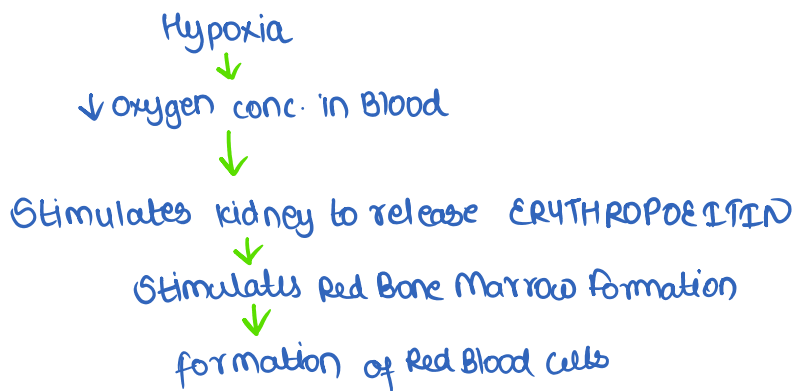 Hypoxia
↓ oxygen conc. in Blood
Stimulates kidney to release ERYTHROPOEITIN
Stimulates Red Bone Marrow Formation
formation of Red Blood Cells